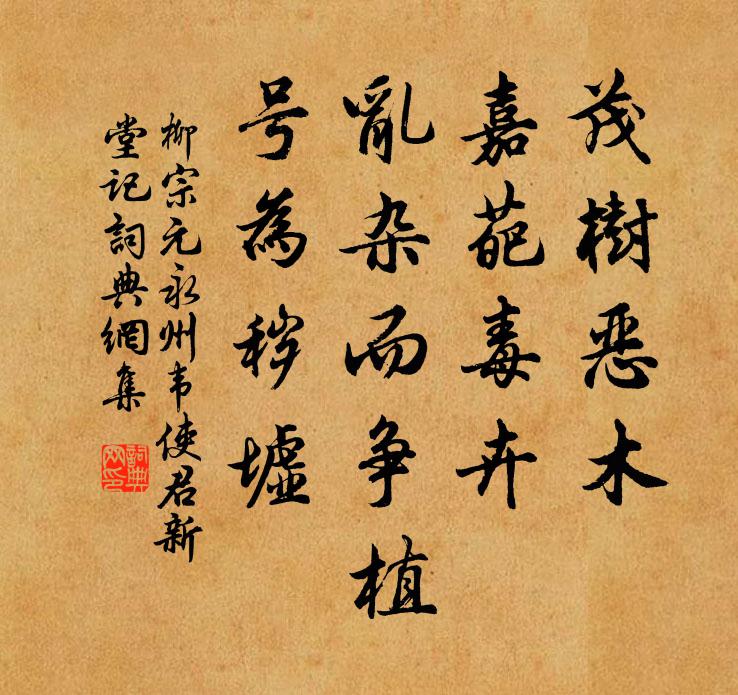 茂樹恶木
嘉葩毒卉
亂杂而争植
号為秽墟
柳宗元永州韦使君新
堂记詞典網集
詞典網印